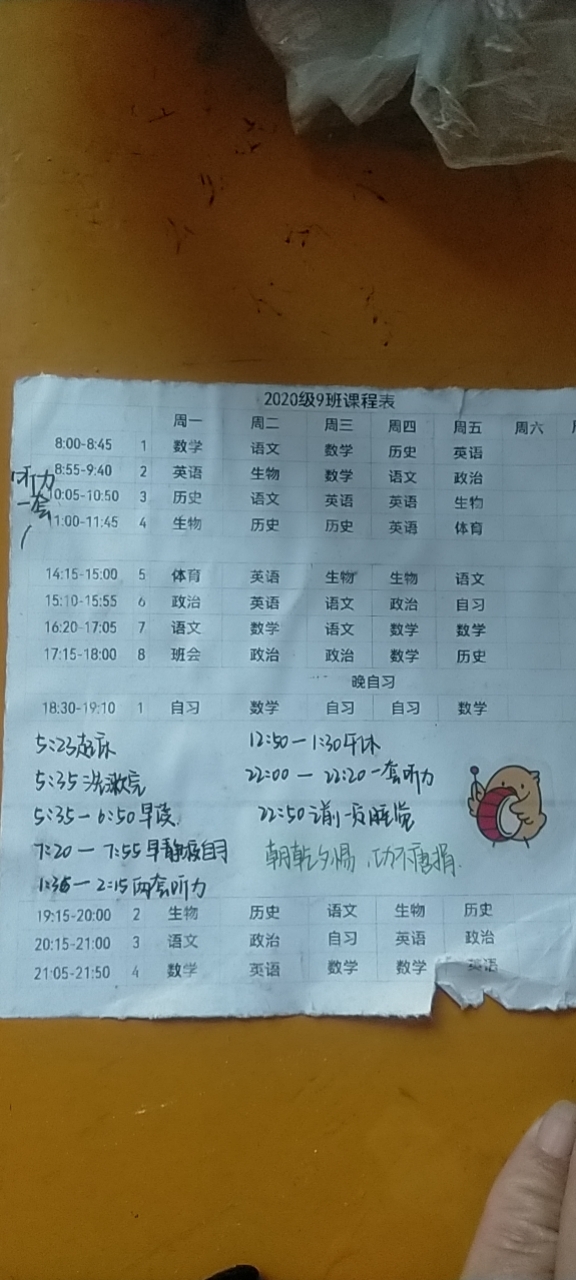 2020级9班课程表
周一 周二 周三 周四 周五 周六
8:00-8:45 1 数学 语文 数学 历史 英语
8:55-9:40 2 英语 生物 数学 语文 政治
听力
10:05-10:50 3 历史 语文 英语 英语 生物
一套
11:00-11:45 4 生物 历史 历史 英语 体育
14:15-15:00 5 体育 英语 生物 生物 语文
15:10-15:55 6 政治 英语 语文 政治 自习
16:20-17:05 7 语文 数学 语文 数学 数学
17:15-18:00 8 班会 政治 政治 数学 历史
晚自习
18:30-19:10 1 自习 数学 自习 自习 数学
5:23起床 12:50—1:30午休
5:35洗漱完 22:00—22:20一套听力
5:35—6:50早读 22:50之前一定睡觉
7:20—7:55早静校自习 朝乾夕惕,功不唐捐.
1:35—2:15两套听力
19:15-20:00 2 生物 历史 语文 生物 历史
20:15-21:00 3 语文 政治 自习 英语 政治
21:05-21:50 4 数学 英语 数学 数学 英语